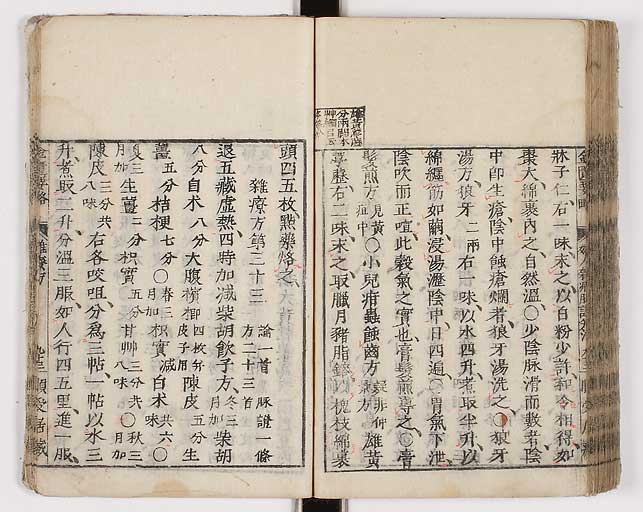 牀子仁右一味末之以白粉少許和令相得如
棗大綿裹內之自然溫○少陰脉滑而數者陰
中卽生瘡陰中蝕瘡爛者狼牙湯洗之○狼牙
湯方狼牙三兩右一味以水四升煮取半升以
綿纏筯如繭浸湯瀝陰中日四遍○胃氣下泄
陰吹而正喧此穀氣之實也膏髮煎導之○膏
髮煎方見黃疸中○小兒疳蟲蝕齒方疑非仲景方雄黃
葶藶右二味末之取臘月豬脂鎔以槐枝綿裹
頭四五枚點藥烙之
雜療方第二十三 論一首 脉證一條 方二十三首
退五藏虛熱四時加減柴胡飲子方冬三月加柴胡
八分白朮八分大腹檳榔四枚并皮子用陳皮五分生
薑五分桔梗七分○春三月加枳實減白朮共六味○
夏三月加生薑三分枳實五分甘艸三分共八味○秋三月加
陳皮三分共八味右各㕮咀分爲三帖一帖以水三
升煮取二升分溫三服如人行四五里進一服